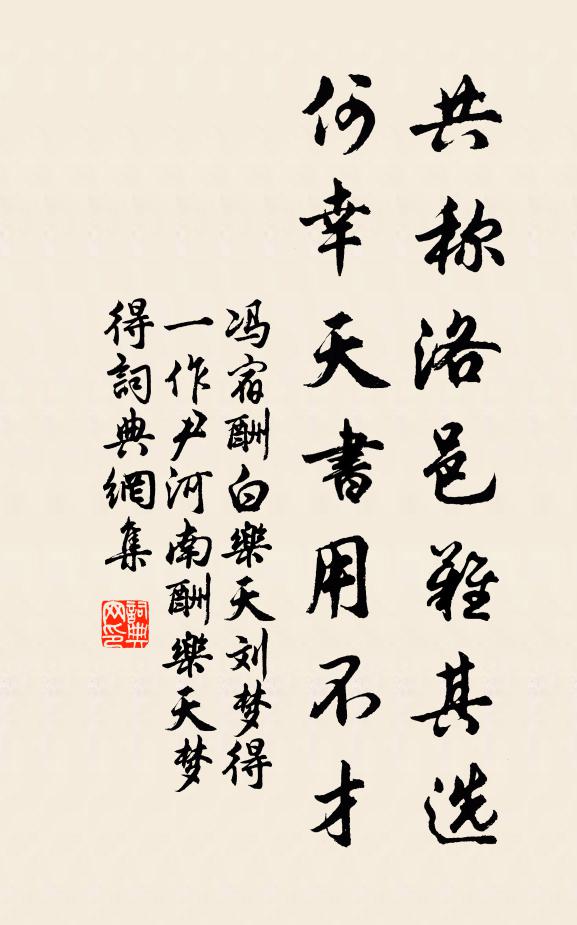 共称洛邑難其选
何幸天書用不才
冯宿酬白樂天刘梦得
一作尹河南酬樂天梦
得詞典網集
詞典网印